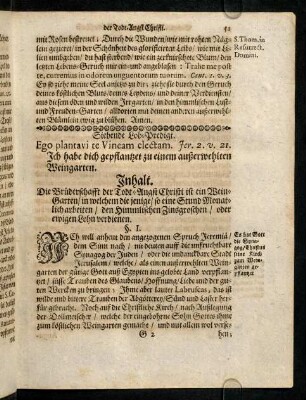 der Todt-Angst Christi. 51
mit Rosen bestreuet; Durch die Wunden/wie mit rohten Näg-
lein gezieret/ in der Schönheit des glorificierten Leibs/ wie mit Li-
lien umbgeben/ du hast sterbend/ wie ein zerknirschte Blum/ den
süssen Lebens-Geruch mir ein- und angeblasen: Trahe me post
te, curremus in odorem unguentorum tuorum. Cant. 1. v. 3.
Es so ziehe meine Seel anjetzo zu dir/ ziehe sie durch den Geruch
deines köstlichen Blums/ deines Lebens- und deiner Zierdwürsten/ aus
diesem öden und wilden Irrgarten/ in den himmlischen Lust- und
Freuden-Garten/ allorten mit deinen andern auserwehlten
Blümlein ewig zu blühen. Amen.
S. Thom. in
Resurrect.
Domini.
Siebende Lob-Predigt.
Ego plantavi te Vineam electam. Jer. 2. v. 21.
Ich habe dich gepflantzet zu einem außerwehlten
Weingarten.
Inhalt.
Die Brüderschafft der Todt-Angst Christi ist ein Wein-
Garten/ in welchem die jenige/ so eine Stund Monat-
lich arbeiten/ den Himmlischen Zinsgroschen/ oder
ewigen Lohn verdienen.
§. I.
Ich will anheut den angezogenen Spruch Jeremiä/
dem Sinn nach/ mi deuten auff die unfruchtbare
Synagog der Juden/ oder die undanckbare Stadt
Jerusalem/ welche/ als einen außerwehlten Wein-
garten der gütige Gott auß Egypten ins gelobte Land verpflan-
tzet/ süsse Trauben des Glaubens/ Hoffnung/ Liebe und der gu-
ten Wercken zu bringen; Ihme aber lauter Labruscas, das ist
wilde und bittere Trauben der Abgötterey/ Sünd und Laster herfür
gebracht. Noch auf die Christliche Kirch/ nach Außlegung
der Dolmetscher/ welche der eingebohrne Sohn Gottes ihme
zum köstlichen Weingarten gemacht/ und mit allen wol verse-
Es hat Gott
die Syna-
gog, Christus
seine Kirch
zum Wein-
garten ge-
pflantzt
G 2 hen;